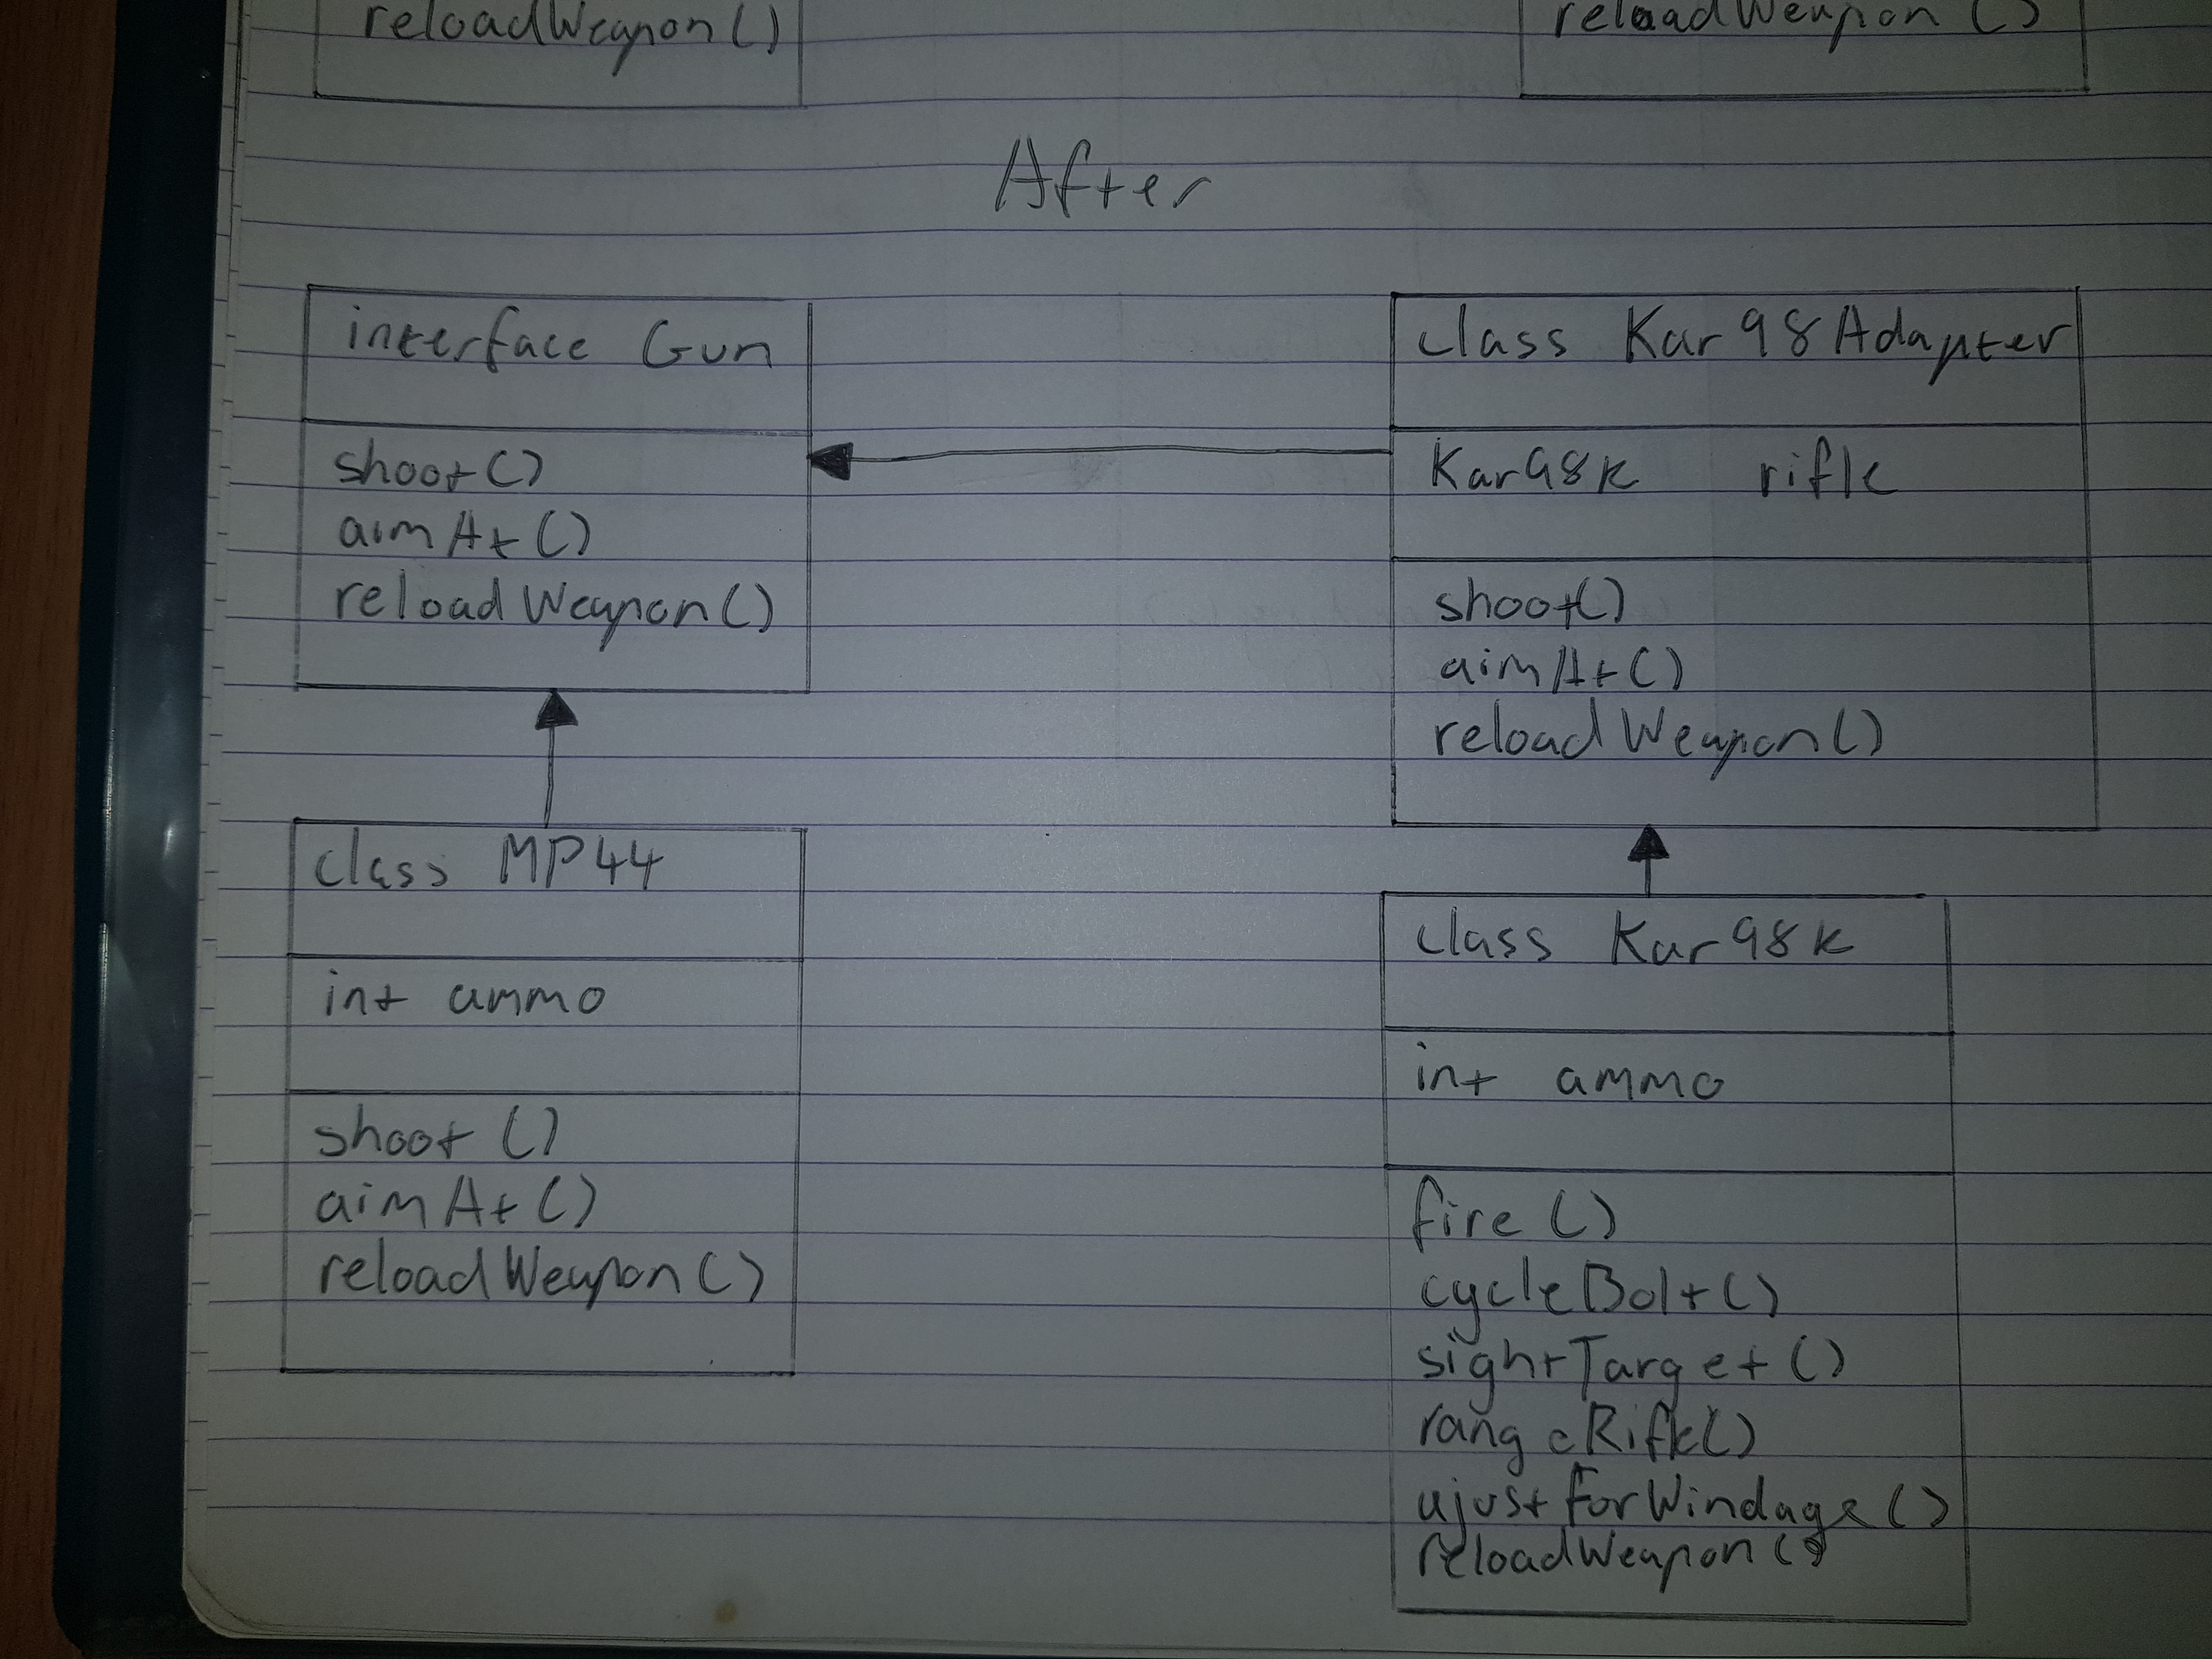 reloadWeapon()
reloadWeapon()
After
interface Gun
shoot()
aimAt()
reloadWeapon()
class Kar98Adapter
Kar98k rifle
shoot()
aimAt()
reloadWeapon()
class MP44
int ammo
shoot()
aimAt()
reloadWeapon()
class Kar98k
int ammo
fire()
cycleBolt()
sightTarget()
rangeRifle()
ajustForWindage()
reloadWeapon()